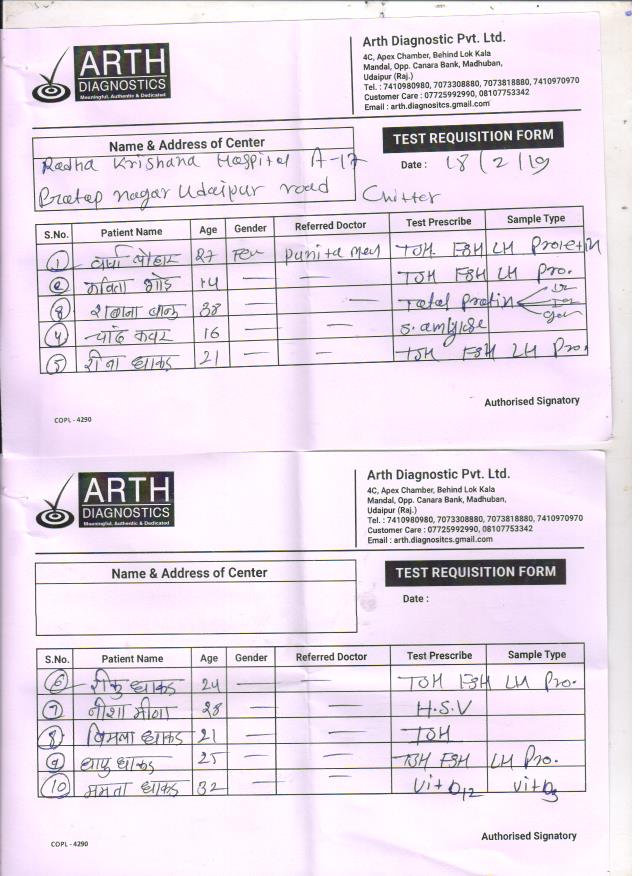 ARTH
DIAGNOSTICS
Meaningful, Authentic & Dedicated
Arth Diagnostic Pvt. Ltd.
4C, Apex Chamber, Behind Lok Kala
Mandal, Opp. Canara Bank, Madhuban,
Udaipur (Raj.)
Tel. : 7410980980, 7073308880, 7073818880, 7410970970
Customer Care : 07725992990, 08107753342
Email : arth.diagnositcs.gmail.com
Name & Address of Center
TEST REQUISITION FORM
Radha Krishana Hospital A-17
Date : 18/2/19
Pratap nagar Udaipur road Chitter
S.No. Patient Name Age Gender Referred Doctor Test Prescribe Sample Type
1 27 Fem Punita TSH FSH LH Prolactin
2 14 — — TSH FSH LH Pro.
3 शबाना बानू 38 — — Total Protin
4 चांद कवर 16 — — S. amylase
5 रीना धाकड 21 — — TSH FSH LH Pro.
Authorised Signatory
COPL - 4290
ARTH
DIAGNOSTICS
Meaningful, Authentic & Dedicated
Arth Diagnostic Pvt. Ltd.
4C, Apex Chamber, Behind Lok Kala
Mandal, Opp. Canara Bank, Madhuban,
Udaipur (Raj.)
Tel. : 7410980980, 7073308880, 7073818880, 7410970970
Customer Care : 07725992990, 08107753342
Email : arth.diagnositcs.gmail.com
Name & Address of Center
TEST REQUISITION FORM
Date :
S.No. Patient Name Age Gender Referred Doctor Test Prescribe Sample Type
6 रींकु धाकड 24 — — TSH FSH LH Pro.
7 नीशा मीणा 28 — — H.S.V
8 विमला धाकड 21 — — TSH
9 धापु धाकड 25 — — TSH FSH LH Pro.
10 ममता धाकड 32 — — Vit D12 Vit D3
Authorised Signatory
COPL - 4290